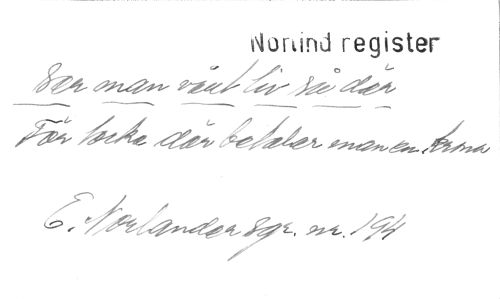 Norlind register
Ser man vårt liv så där
För locka där betaler man en krona
E. Norlander sgr. nr. 194